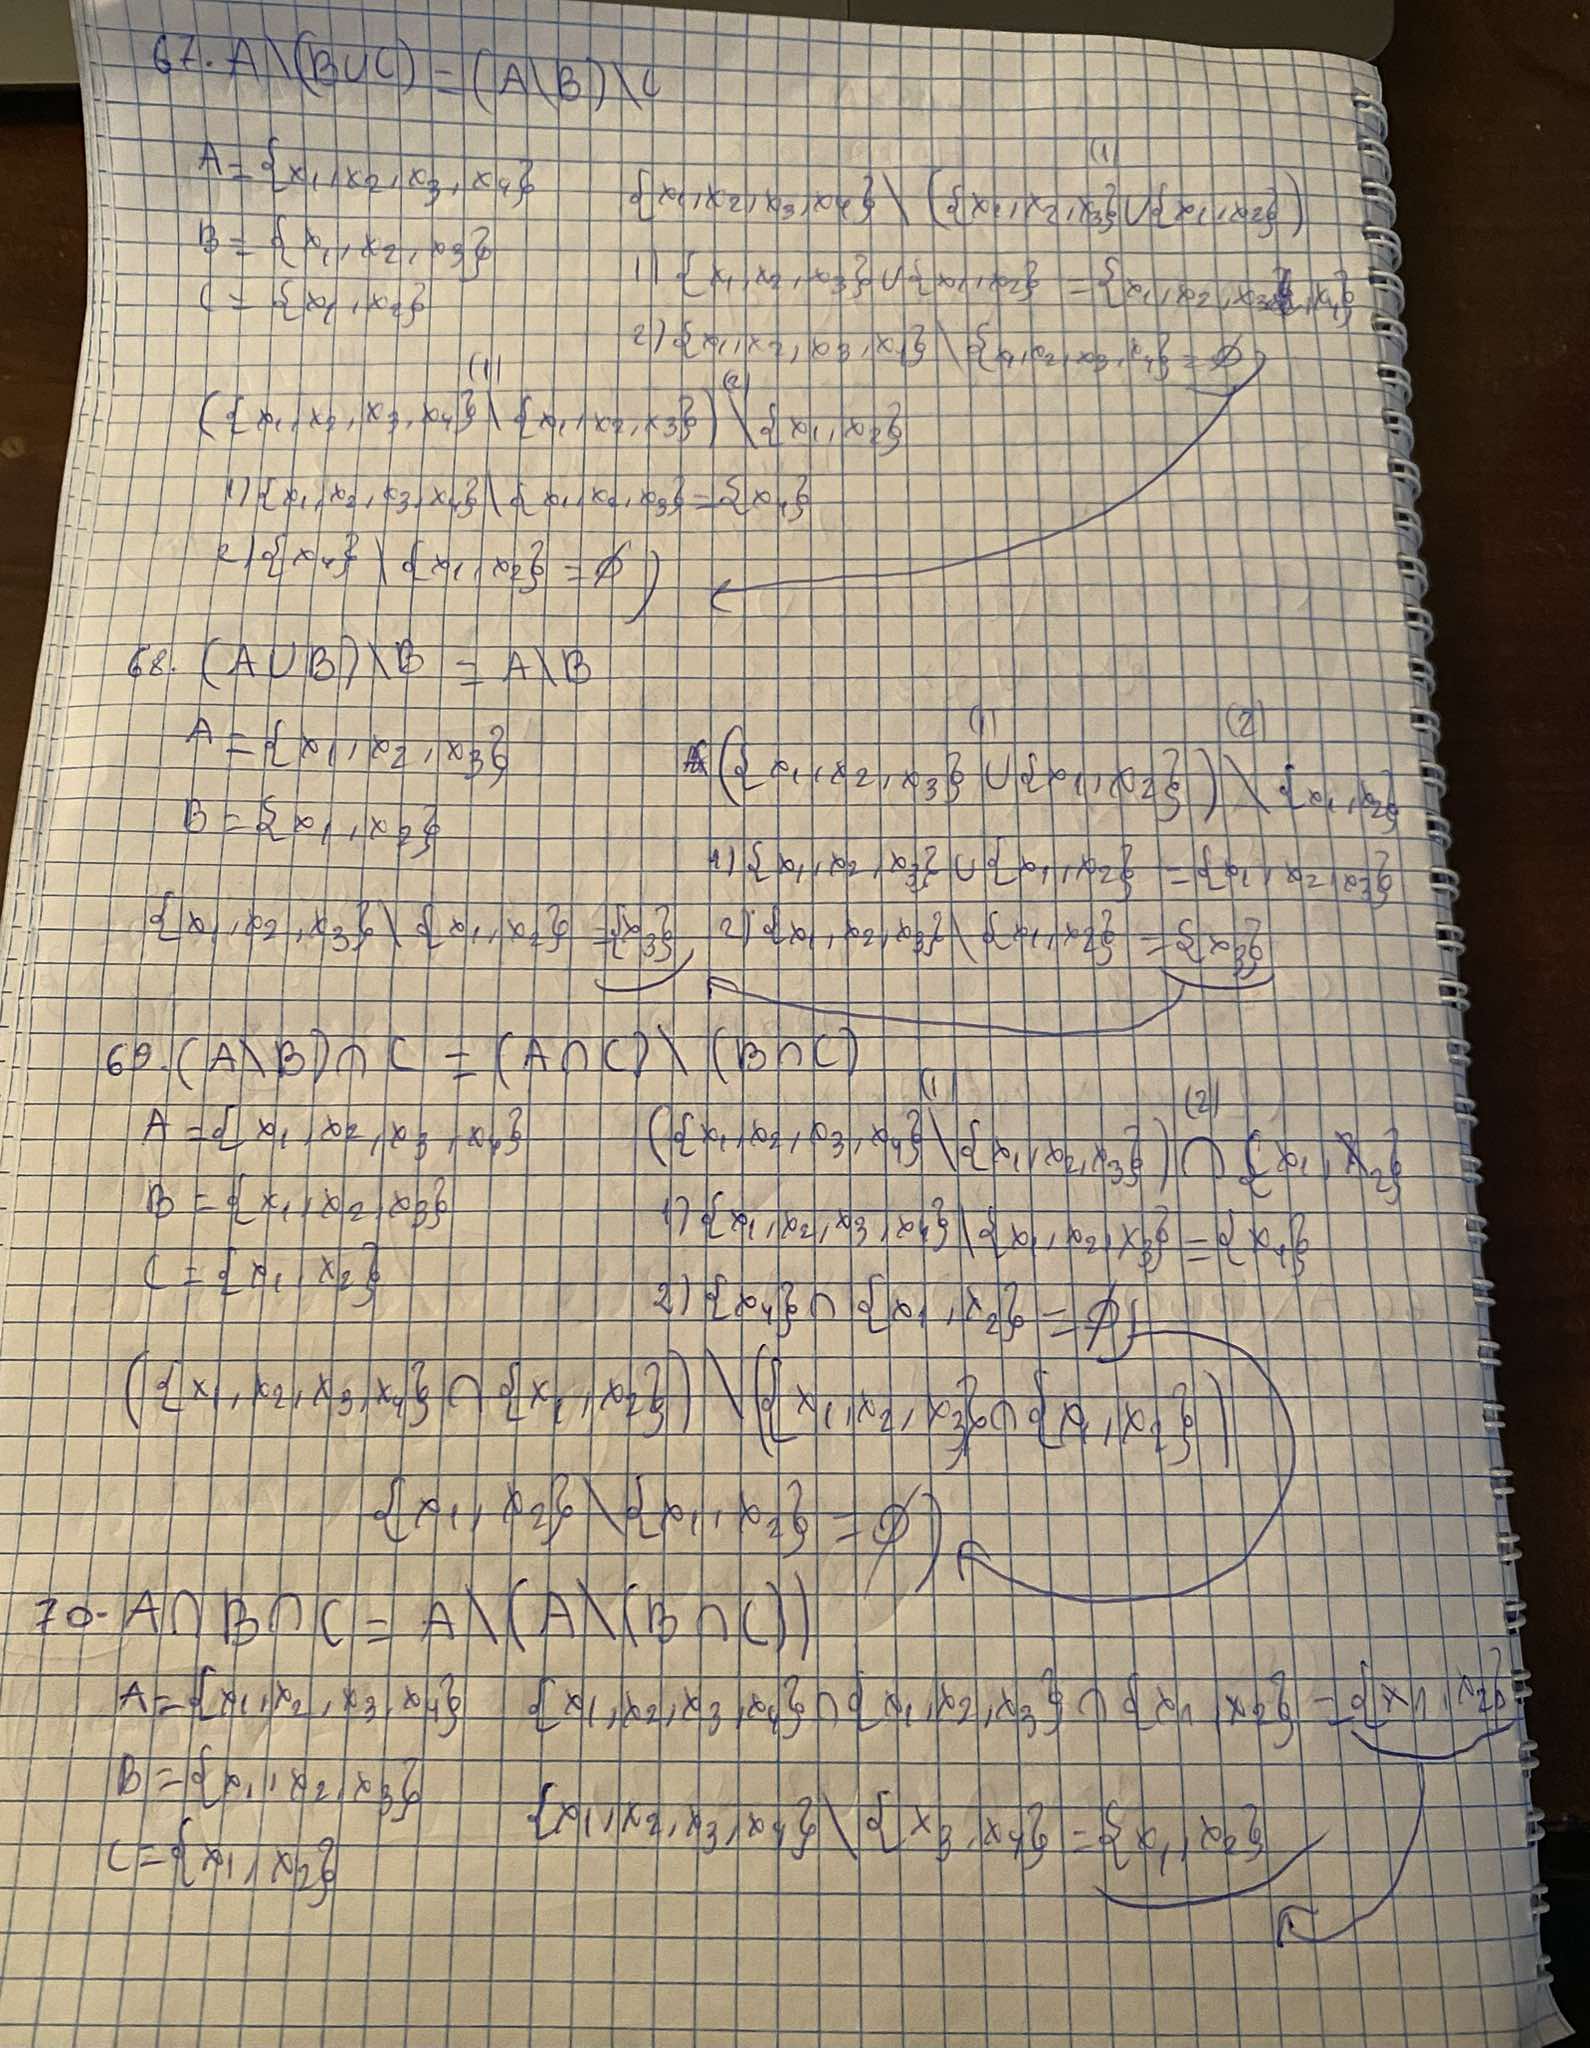 67. A\(B∪C) = (A\B)\C
(1)
A = {x1, x2, x3, x4} {x1, x2, x3, x4} \ ({x1, x2, x3} ∪ {x1, x2})
B = {x1, x2, x3}
1) {x1, x2, x3} ∪ {x1, x2} = {x1, x2, x3, x4}
C = {x1, x2}
2) {x1, x2, x3, x4} \ {x1, x2, x3, x4} = ∅
(1) (2)
({x1, x2, x3, x4} \ {x1, x2, x3}) \ {x1, x2}
1) {x1, x2, x3, x4} \ {x1, x2, x3} = {x4}
2) {x4} \ {x1, x2} = ∅
68. (A∪B)\B = A\B
(1) (2)
A = {x1, x2, x3} ({x1, x2, x3} ∪ {x1, x2}) \ {x1, x2}
B = {x1, x2}
1) {x1, x2, x3} ∪ {x1, x2} = {x1, x2, x3}
{x1, x2, x3} \ {x1, x2} = {x3} 2) {x1, x2, x3} \ {x1, x2} = {x3}
69. (A\B)∩C = (A∩C)\(B∩C)
(1) (2)
A = {x1, x2, x3, x4} ({x1, x2, x3, x4} \ {x1, x2, x3}) ∩ {x1, x2}
B = {x1, x2, x3} 1) {x1, x2, x3, x4} \ {x1, x2, x3} = {x4}
C = {x1, x2} 2) {x4} ∩ {x1, x2} = ∅
({x1, x2, x3, x4} ∩ {x1, x2}) \ ({x1, x2, x3} ∩ {x1, x2})
{x1, x2} \ {x1, x2} = ∅
70. A∩B∩C = A\(A\(B∩C))
A = {x1, x2, x3, x4} {x1, x2, x3, x4} ∩ {x1, x2, x3} ∩ {x1, x2} = {x1, x2}
B = {x1, x2, x3}
{x1, x2, x3, x4} \ {x3, x4} = {x1, x2}
C = {x1, x2}